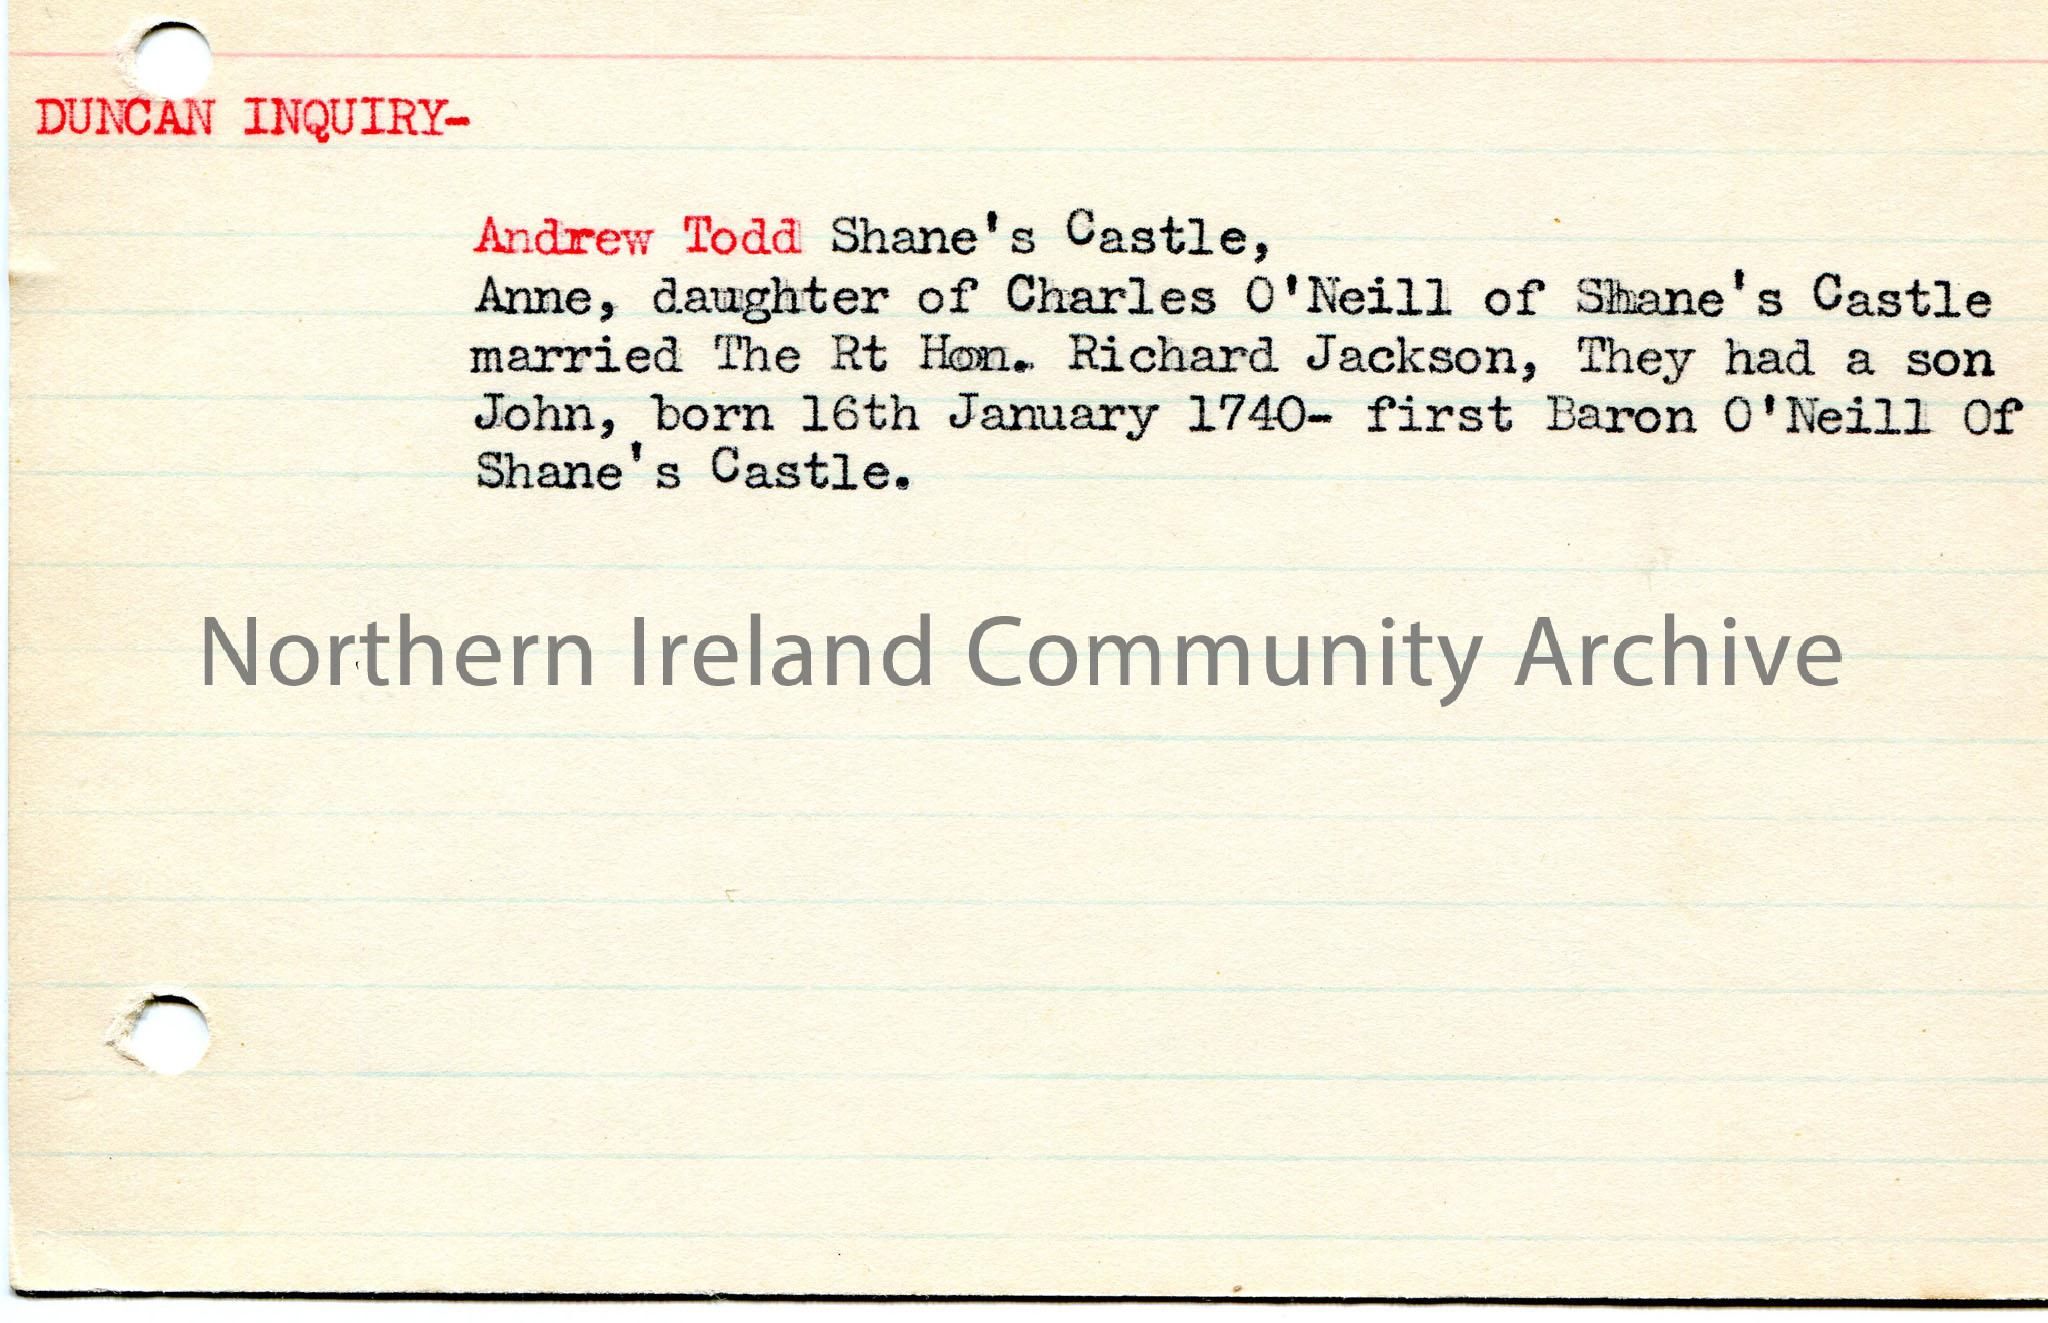 DUNCAN INQUIRY-
Andrew Todd Shane's Castle,
Anne, daughter of Charles O'Neill of Shane's Castle
married The Rt Hon. Richard Jackson, They had a son
John, born 16th January 1740- first Baron O'Neill Of
Shane's Castle.
Northern Ireland Community Archive